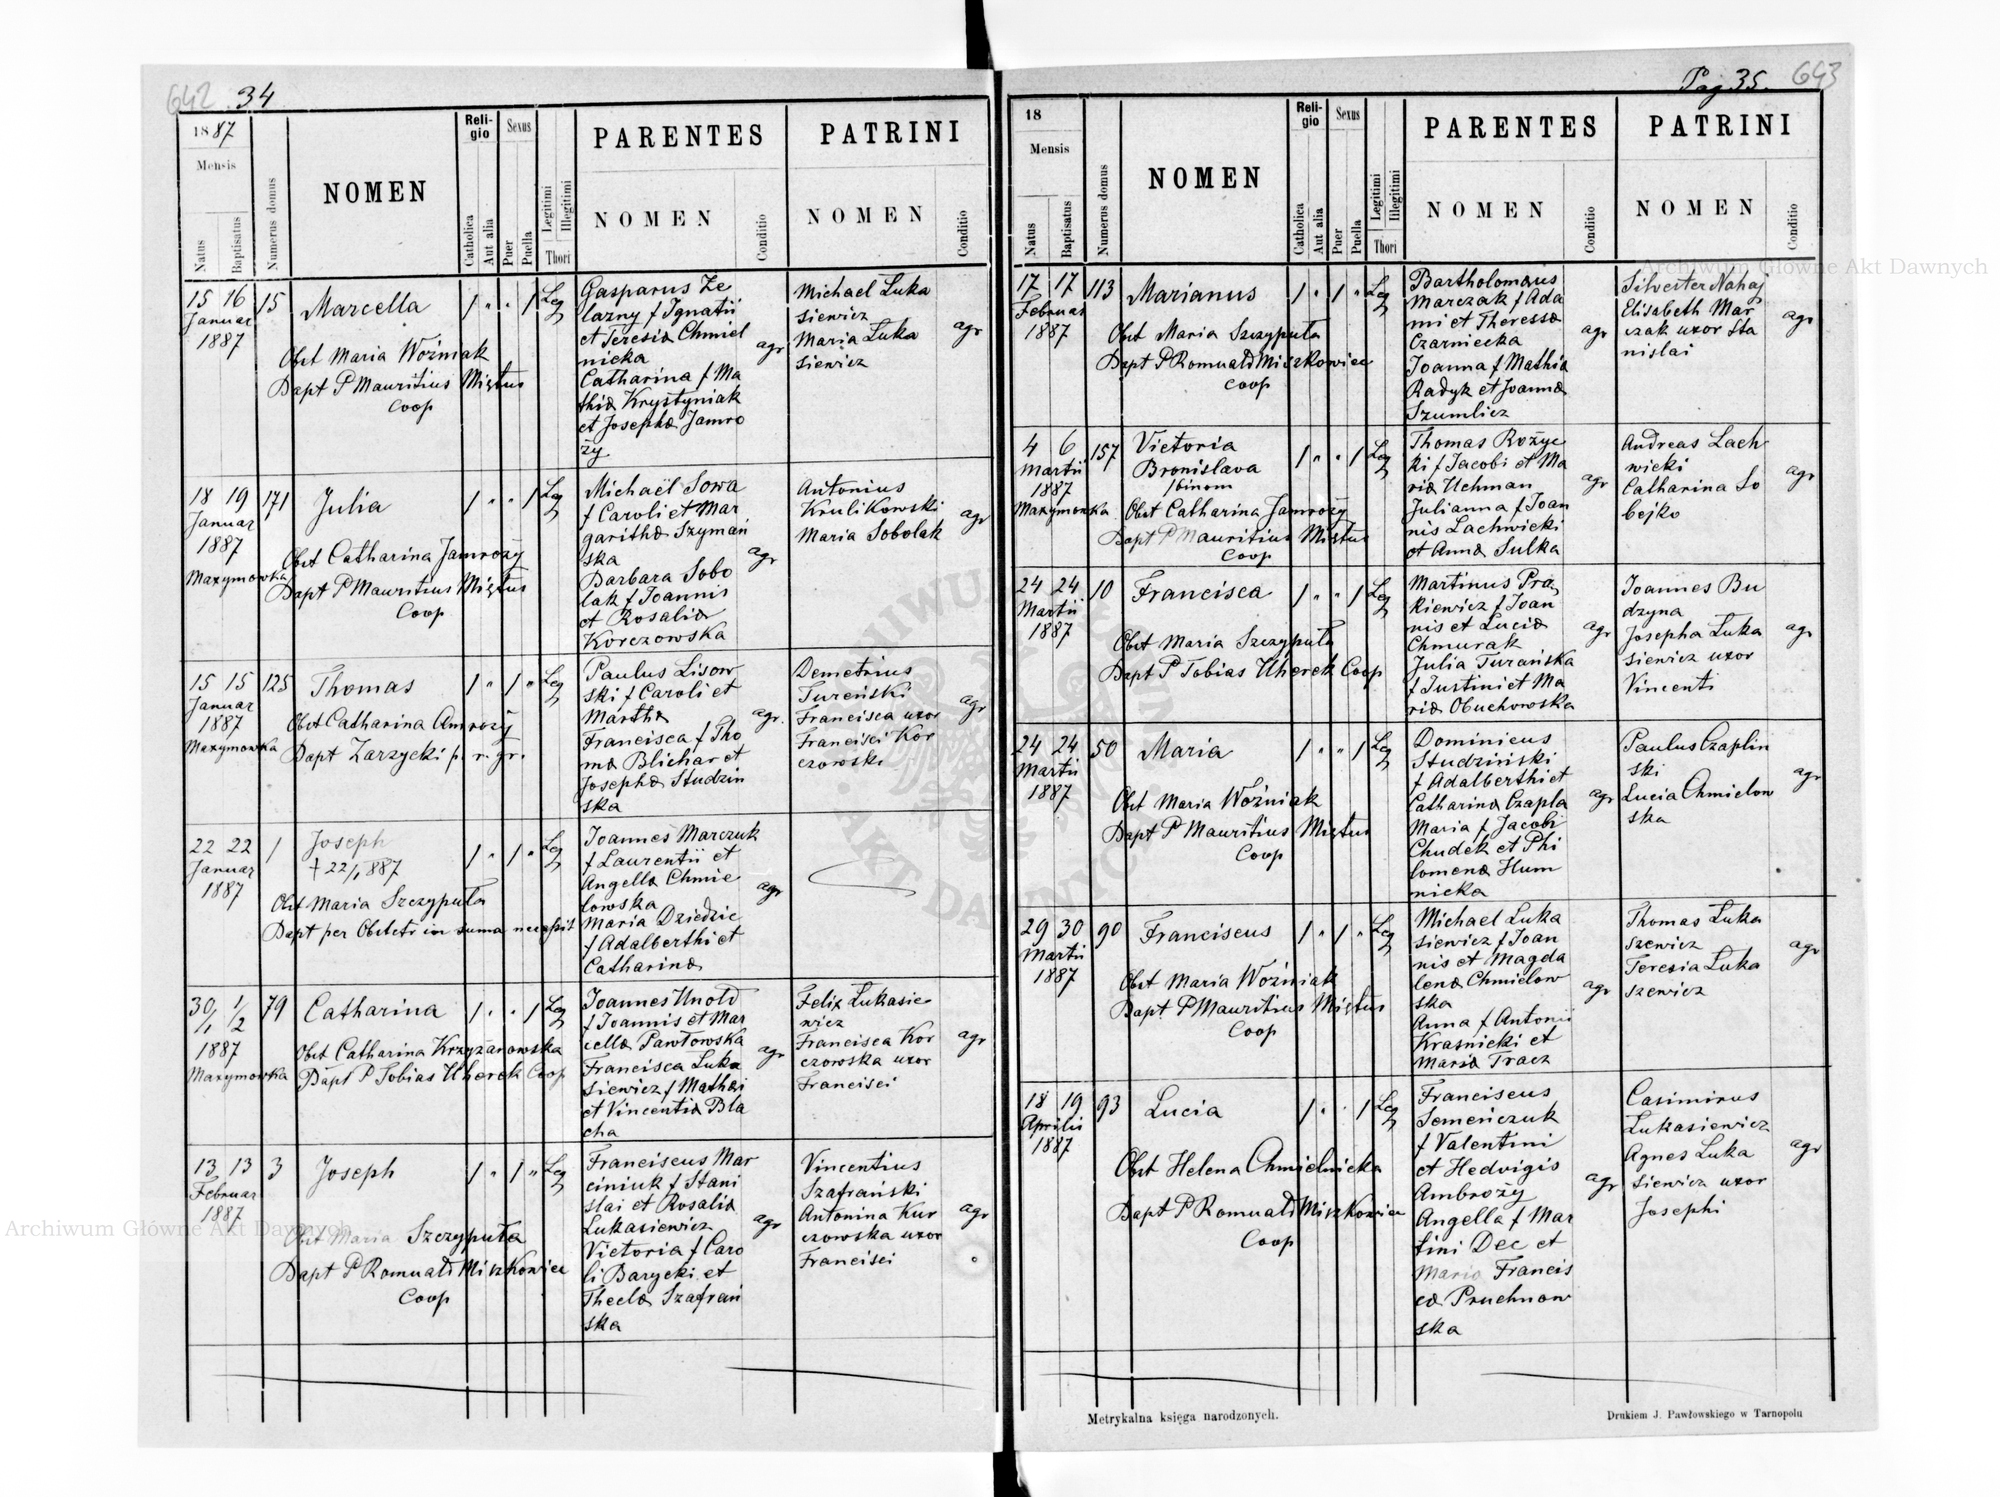 642 34
1887
Mensis
Natus
Baptisatus
Numerus domus
NOMEN
Reli-
gio
Catholica
Aut alia
Sexus
Puer
Puella
Legitimi
Illegitimi
Thori
PARENTES
NOMEN
Conditio
PATRINI
NOMEN
Conditio
15 16
Januar
1887
15
Marcella
Obst Maria Woźniak
Bapt P Mauritius Miętus
Coop
1 " " 1
Leg
Gasparus Że
lazny f Ignatii
et Teresia Chmiel
nicka
Catharina f Ma
thia Krystyniak
et Josepha Jamro
ży
agr
Michael Luka
siewicz
Maria Luka
siewicz
agr
18 19
Januar
1887
Maxymowka
171
Julia
Obst Catharina Jamroży
Bapt P Mauritius Miętus
Coop
1 " " 1
Leg
Michaël Sowa
f Caroli et Mar
garitha Szymań
ska
Barbara Sobo
lak f Joannis
et Rosalia
Korczowska
agr
Antonius
Krulikowski
Maria Sobolak
agr
15 15
Januar
1887
Maxymowka
125
Thomas
Obst Catharina Amroży
Bapt Zarzycki p. r. gr.
1 " 1 "
Leg
Paulus Lisow
ski f Caroli et
Martha
Francisca f Tho
ma Blichar et
Josepha Studzin
ska
agr.
Demetrius
Tureński
Francisca uxor
Francisci Kor
czowski
agr
22 22
Januar
1887
1
Joseph
† 22/1 887
Obst Maria Szczyputa
Bapt per Obstetr in suma necessit
1 " 1 "
Leg
Joannes Marczuk
f Laurentii et
Angella Chmie
lowska
Maria Dziedzic
f Adalberthi et
Catharina
agr
30/1 1/2
1887
Maxymowka
79
Catharina
Obst Catharina Krzyżanowska
Bapt P Tobias Uherek Coop
1 " " 1
Leg
Joannes Unold
f Joannis et Mar
cella Pawłowska
Francisca Luka
siewicz f Mathei
et Vincentia Bla
cha
agr
Felix Lukasie
wicz
Francisca Kor
czowska uxor
Francisci
agr
13 13
Februar
1887
3
Joseph
Obst Maria Szczyputa
Bapt P Romuald Miszkowicz
Coop
1 " 1 "
Leg
Franciscus Mar
ciniuk f Stani
slai et Rosalia
Lukasiewicz
Victoria f Caro
li Barycki et
Thecla Szafrań
ska
agr
Vincentius
Szafrański
Antonina Kur
czowska uxor
Francisci
agr
Pag 35. 643
18
Mensis
Natus
Baptisatus
Numerus domus
NOMEN
Reli-
gio
Catholica
Aut alia
Sexus
Puer
Puella
Legitimi
Illegitimi
Thori
PARENTES
NOMEN
Conditio
PATRINI
NOMEN
Conditio
17 17
Februar
1887
113
Marianus
Obst Maria Szczyputa
Bapt P Romuald Miszkowicz
Coop
1 " 1 "
Leg
Bartholomäus
Marczak f Ada
mi et Theressa
Czarniecka
Joanna f Mathia
Radyk et Joanna
Szumlicz
agr
Silvester Nahaj
Elisabeth Mar
czak uxor Sta
nislai
agr
4 6
Martii
1887
Maxymowka
157
Victoria
Bronislava
/binom
Obst Catharina Jamroży
Bapt P Mauritius Miętus
Coop
1 " " 1
Leg
Thomas Rożyc
ki f Jacobi et Ma
ria Uchman
Julianna f Joan
nis Lachwicki
et Anna Sulka
agr
Andreas Lach
wicki
Catharina So
bejko
agr
24 24
Martii
1887
10
Francisca
Obst Maria Szczyputa
Bapt P Tobias Uherek Coop
1 " " 1
Leg
Martinus Pra
kiewicz f Joan
nis et Lucia
Chmurak
Julia Turańska
f Justini et Ma
ria Obuchowska
agr
Joannes Bu
dzyna
Josepha Luka
siewicz uxor
Vincenti
agr
24 24
Martii
1887
50
Maria
Obst Maria Woźniak
Bapt P Mauritius Miętus
Coop
1 " " 1
Leg
Dominicus
Studziński
f Adalberthi et
Catharina Czapla
Maria f Jacobi
Chudek et Phi
lomena Hum
nicka
agr
Paulus Czaplin
ski
Lucia Chmielow
ska
agr
29 30
Martii
1887
90
Franciscus
Obst Maria Woźniak
Bapt P Mauritius Miętus
Coop
1 " 1 "
Leg
Michael Luka
siewicz f Joan
nis et Magda
lena Chmielow
ska
Anna f Antonii
Krasnicki et
Maria Tracz
agr
Thomas Luka
szewicz
Teresia Luka
szewicz
agr
18 19
Aprilis
1887
93
Lucia
Obst Helena Chmielnicka
Bapt P Romuald Miszkowicz
Coop
1 " " 1
Leg
Franciscus
Semeńczuk
f Valentini
et Hedvigis
Ambroży
Angella f Mar
tini Dec et
Maria Francis
ca Pruchnow
ska
agr
Casimirus
Lukasiewicz
Agnes Luka
siewicz uxor
Josephi
agr
Metrykalna księga narodzonych.
Drukiem J. Pawłowskiego w Tarnopolu
Archiwum Główne Akt Dawnych
Archiwum Główne Akt Dawnych